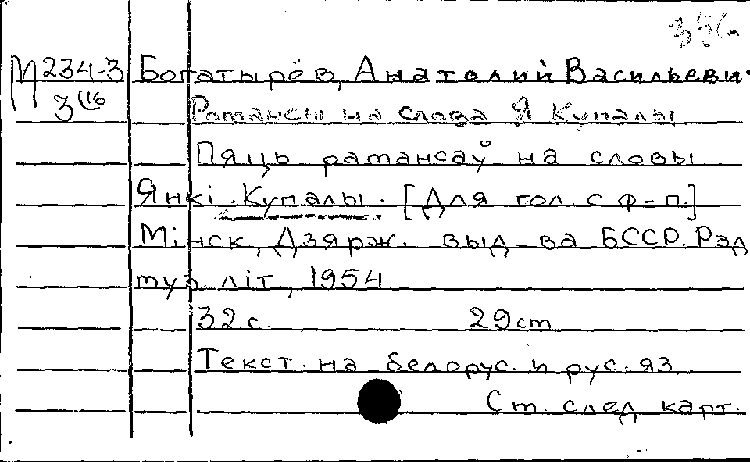 М 234-3 Богатырёв, Анатолий Васильеви
3/16 Романсы на слова Я Купалы
Пяць рамансаў на словы
Янкі Купалы. [Для гол. с ф-п.]
Мінск, Дзярж. выд-ва БССР. Рэд
муз літ, 1954
32 с. 29 cm
Текст на белорус. и рус. яз.
См. след карт.